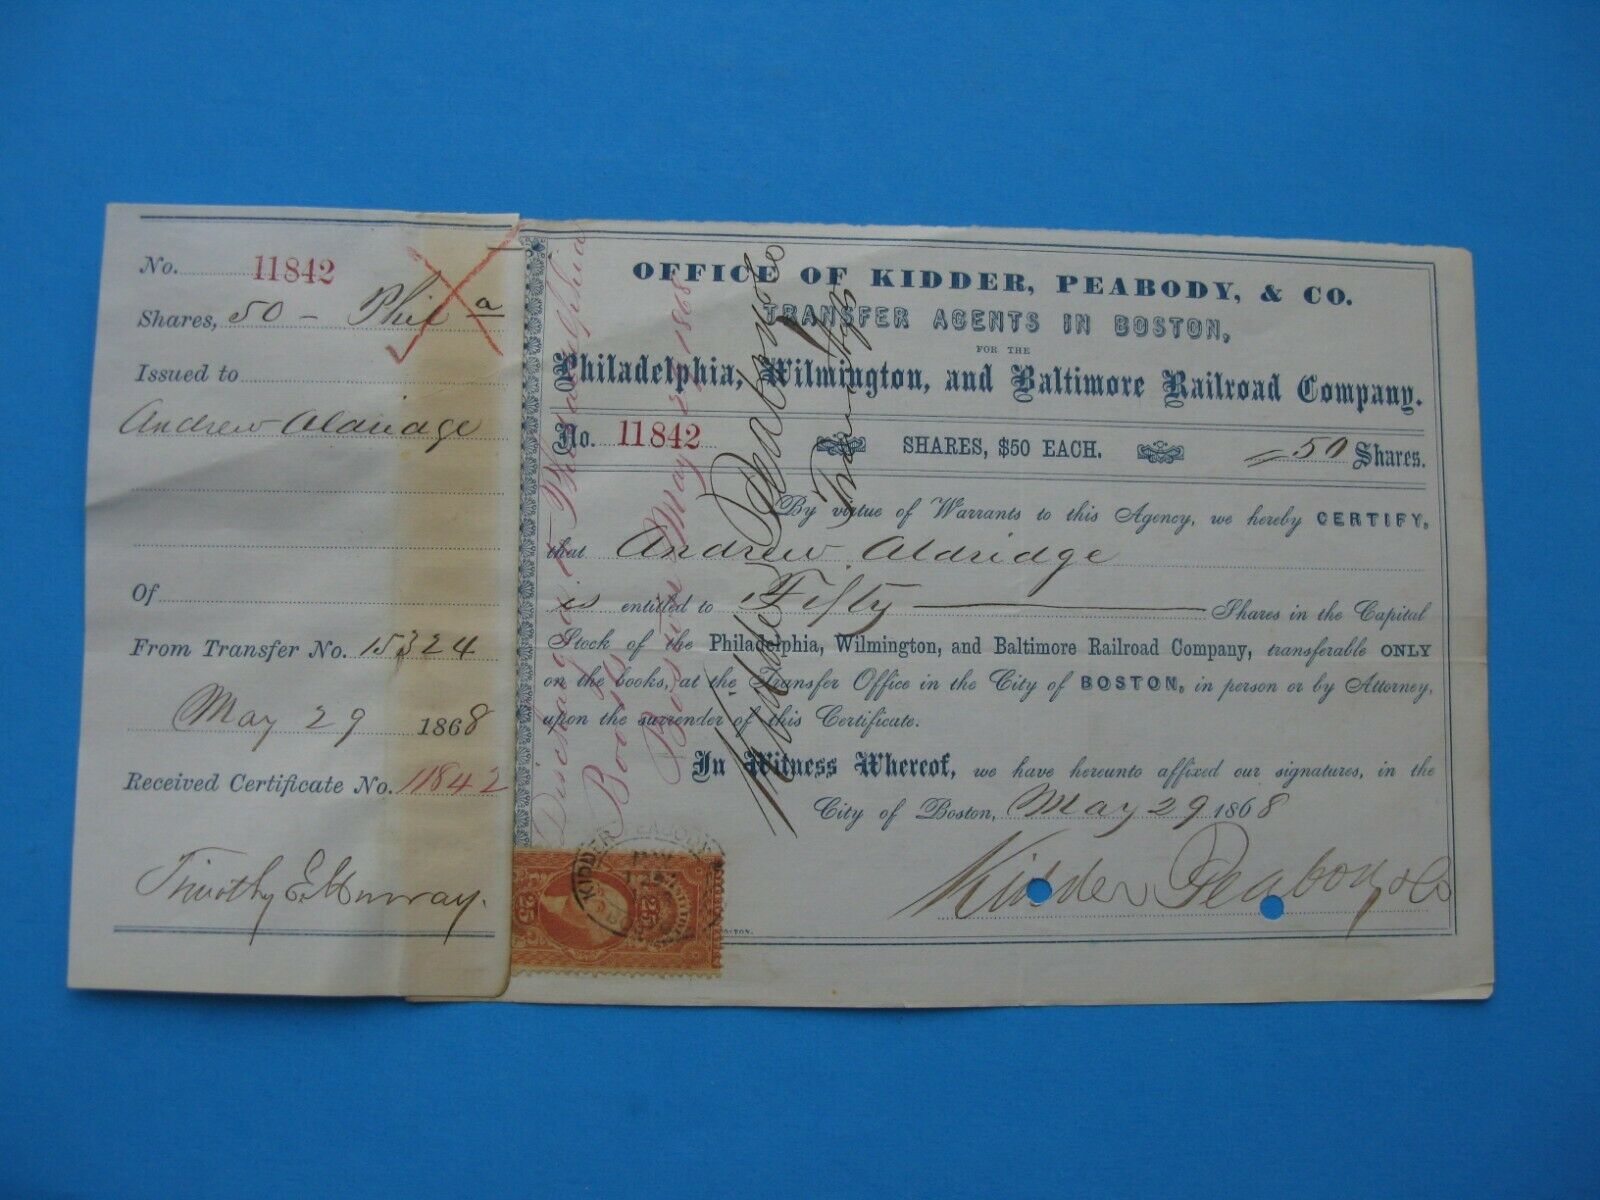 No. 11842
Shares, 50 - Phil a
Issued to
Andrew Aldridge
Of
From Transfer No. 15324
May 29 1868
Received Certificate No. 11842
Timothy E. Murray.
OFFICE OF KIDDER, PEABODY, & CO.
TRANSFER AGENTS IN BOSTON,
FOR THE
Philadelphia, Wilmington, and Baltimore Railroad Company.
No. 11842 SHARES, $50 EACH. 50 Shares.
By virtue of Warrants to this Agency, we hereby CERTIFY,
that Andrew Aldridge
is entitled to Fifty Shares in the Capital
Stock of the Philadelphia, Wilmington, and Baltimore Railroad Company, transferable ONLY
on the books, at the Transfer Office in the City of BOSTON, in person or by Attorney,
upon the surrender of this Certificate.
In Witness Whereof, we have hereunto affixed our signatures, in the
City of Boston, May 29 1868
Kidder Peabody & Co
Discharged Philadelphia
Books
Boston May 29 1868
Kidder Peabody & Co
Transfer Agts
KIDDER PEABODY
MAY
25
25
BOSTON.